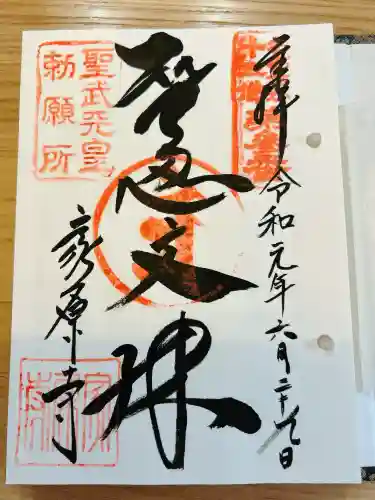 奉拝 令和元年六月二十九日
智恵文殊
聖武天皇
勅願所
家原寺